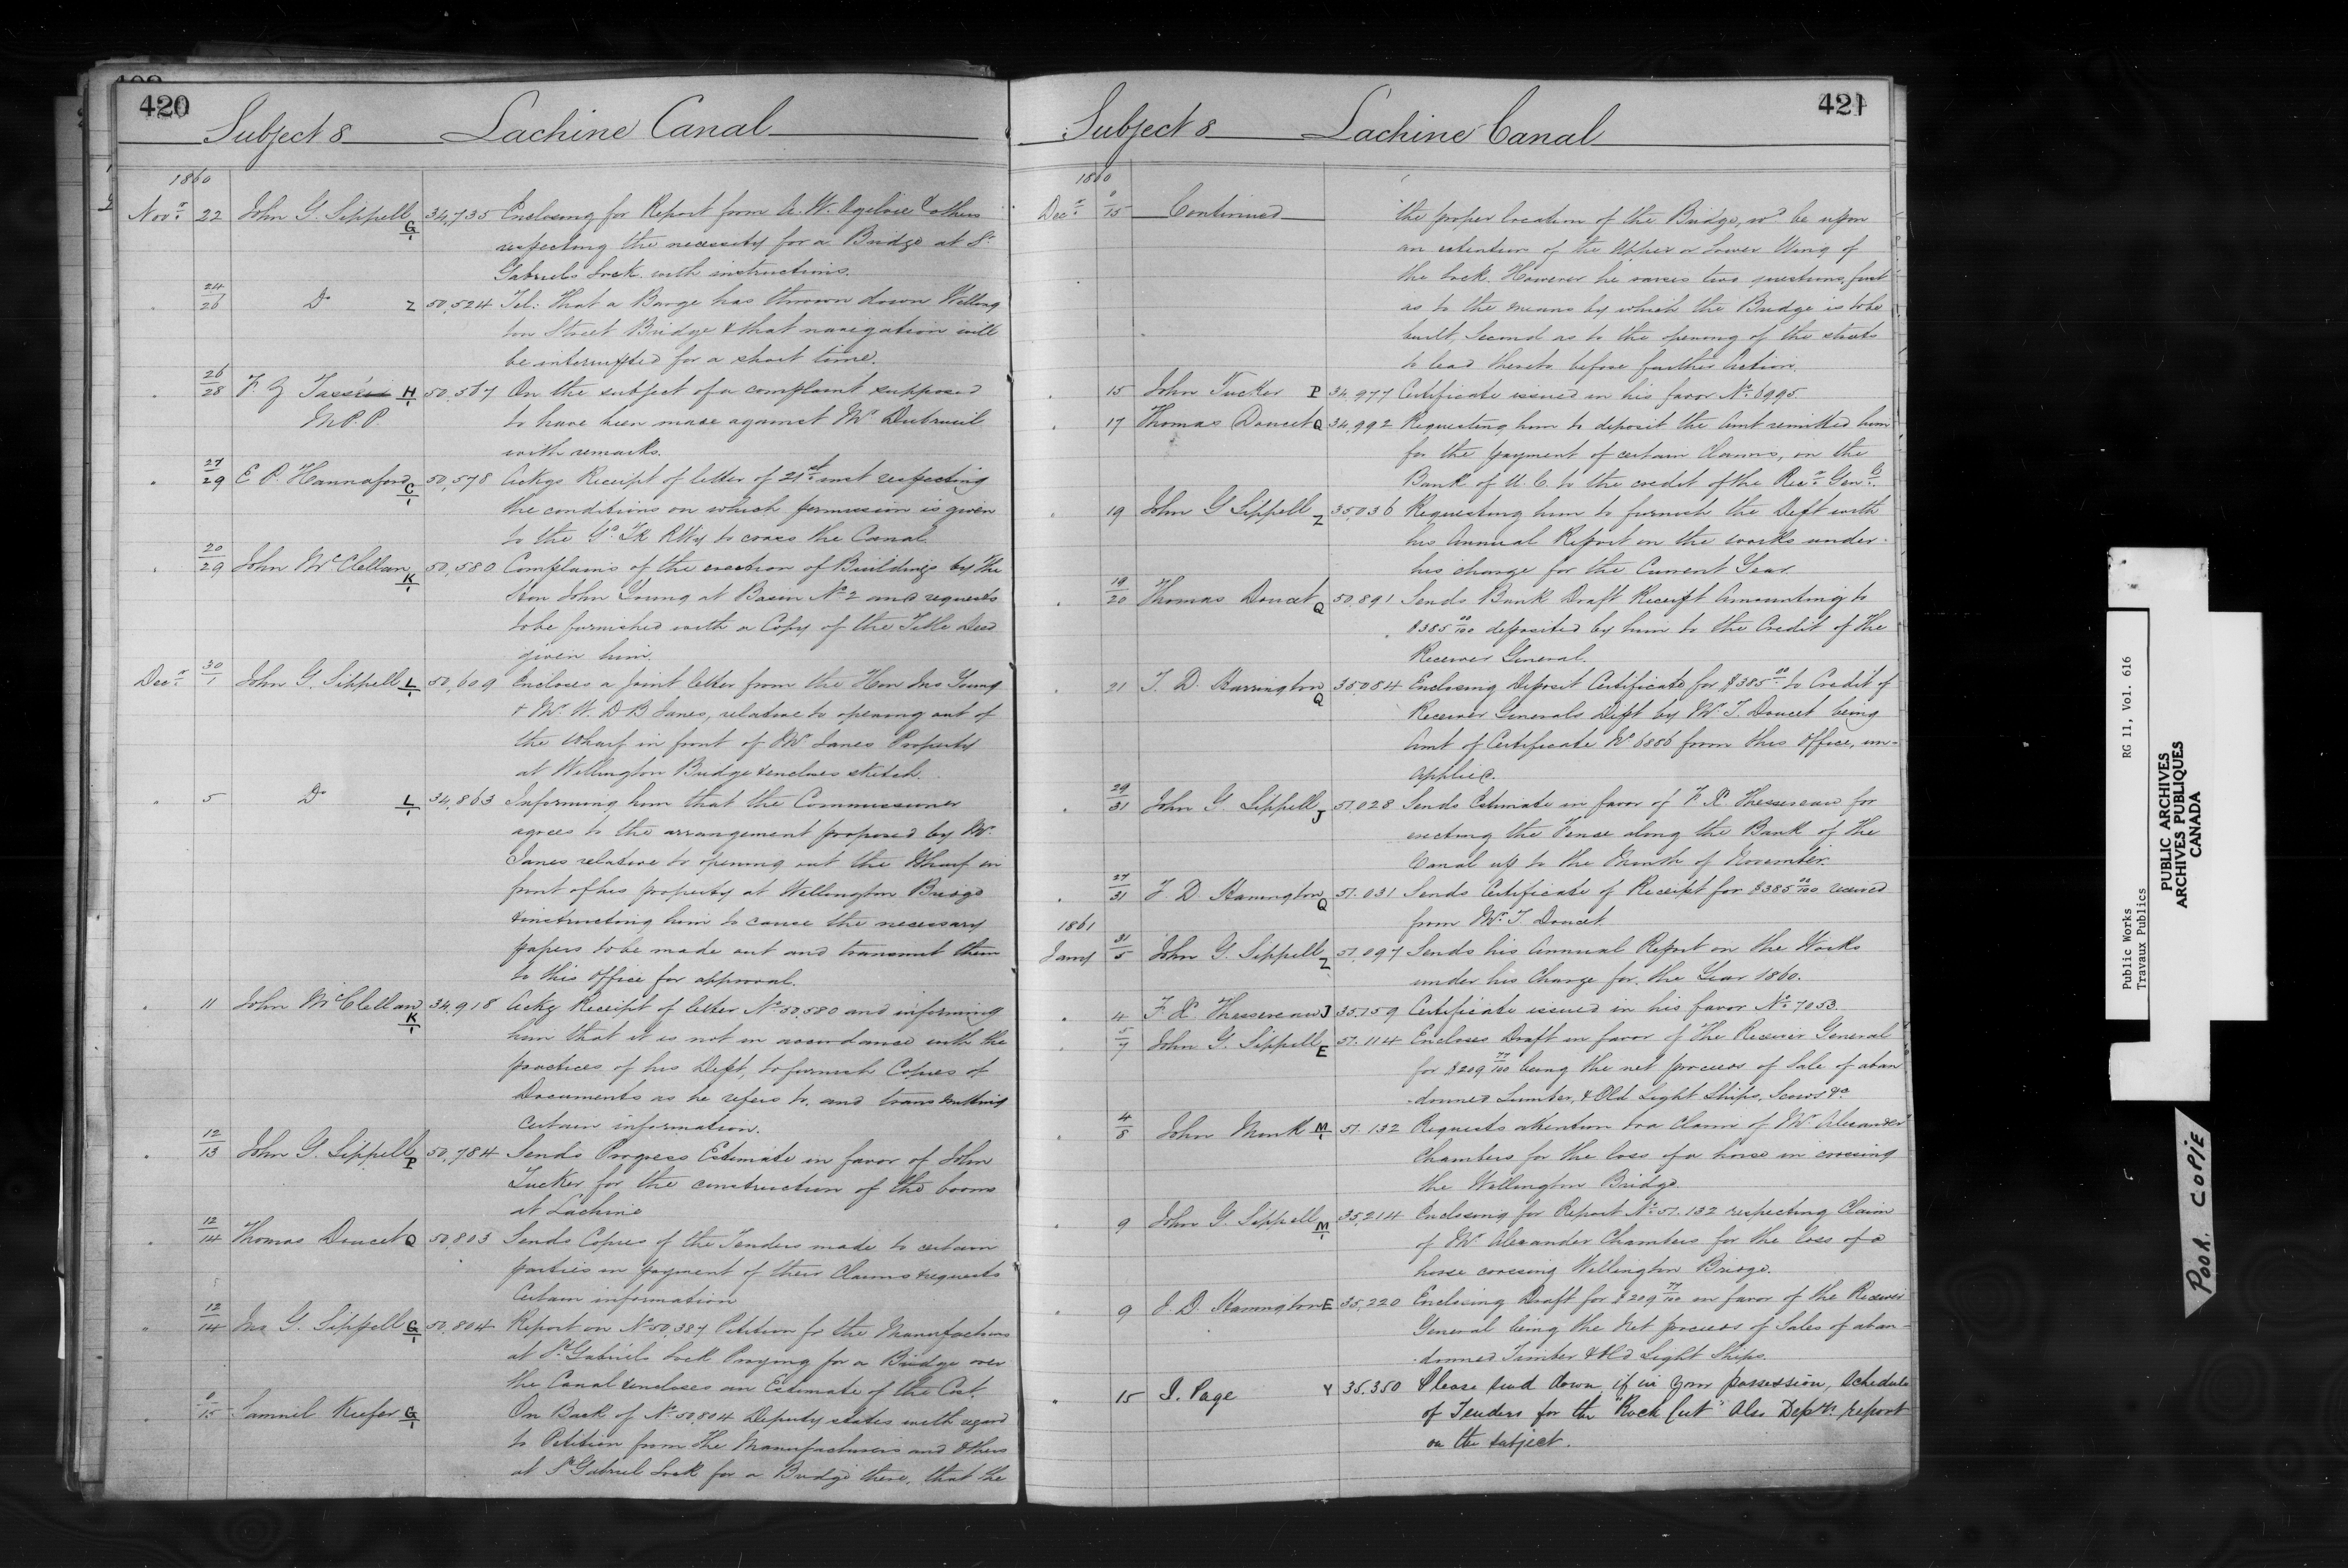 420
Subject 8 Lachine Canal
1860
Novr. 22 John G. Sippell G/1 34,735 Enclosing for Report from A. W. Ogilvie & others
respecting the necessity for a Bridge at St.
Gabriels Lock with instructions.
24/26 Do Z 50,524 Tel: That a Barge has thrown down Welling
ton Street Bridge & that navigation will
be interrupted for a short time.
26/28 F. Z Tassé H/1 50,567 On the subject of a complaint supposed
M.P.P. to have been made against Mr Dubreuil
with remarks.
27/29 E P. Hannaford C/1 50,578 Ackgs Receipt of letter of 21st inst respecting
the conditions on which permission is given
to the Gd Tk RWy to cross the Canal.
20/29 John McClellan K/1 50,580 Complains of the erection of Buildings by the
Hon John Young at Basin No 2 and requests
to be furnished with a Copy of the Title Deed
given him.
Decr. 30/1 John G. Sippell L/1 50,609 Encloses a joint letter from the Hon Jno Young
& Mr. W. D B Janes, relative to opening out of
the Wharf in front of Mr Janes Property
at Wellington Bridge & encloses sketch.
5 Do L/1 34,863 Informing him that the Commissioner
agrees to the arrangement proposed by Mr.
Janes relative to opening out the Wharf in
front of his property at Wellington Bridge
& instructing him to cause the necessary
papers to be made out and transmit them
to this Office for approval.
11 John McClellan K/1 34,918 Ackg Receipt of letter No 50,580 and informing
him that it is not in accordance with the
practices of his Dept, to furnish Copies of
Documents as he refers to, and transmitting
certain information.
12/13 John G. Sippell P 50,784 Sends Progress Estimate in favor of John
Tucker for the construction of the booms
at Lachine
12/14 Thomas Doucet Q 50,803 Sends Copies of the Tenders made to certain
parties in payment of their Claims & requests
Certain information
12/14 Jno G. Sippell G/1 50,804 Report on No 50,387 Petition for the Manufacturers
at St Gabriels Lock Praying for a Bridge over
the Canal & encloses an Estimate of the Cost.
0/15 Samuel Keefer G/1 On Back of No 50,804 Deputy states with regard
to Petition from the Manufacturers and Others
at St Gabriel Lock for a Bridge there, that the
421
Subject 8 Lachine Canal
1860
Decr. 0/15 Continued the proper location of the Bridge, wd be upon
an extention of the Upper or Lower Wing of
the Lock. However he raises two questions, first
as to the means by which the Bridge is to be
built, Second as to the opening of the streets
to lead thereto before further Action.
15 John Tucker P 34,977 Certificate issued in his favor No 6995.
17 Thomas Doucet Q 34,992 Requesting him to deposit the Amt remitted him
for the payment of certain Claims, in the
Bank of U. C. to the credit of the Recr. Genl.
19 John G Sippell Z 35,036 Requesting him to furnish the Dept with
his Annual Report on the works under
his charge for the Current Year.
19/20 Thomas Doucet Q 50,891 Sends Bank Draft Receipt Amounting to
$385 00/100 deposited by him to the Credit of the
Receiver General.
21 T. D. Harrington Q 35,084 Enclosing Deposit Certificate for $385 00 to Credit of
Receiver Generals Dept by Mr. T. Doucet being
Amt of Certificate No 6886 from this Office, un-
applied.
29/31 John G. Sippell J 51,028 Sends Estimate in favor of F. X. Thessereau for
erecting the Fence along the Bank of the
Canal up to the Month of November.
27/31 T. D Harrington Q 51,031 Sends Certificate of Receipt for $385 00/100 received
from Mr. T. Doucet
1861
Jany 31/5 John G. Sippell Z 51,097 Sends his Annual Report on the Works
under his Charge for the Year 1860.
4 F. X. Thessereau J 35,159 Certificate issued in his favor No 7053.
5/7 John G. Sippell E 51,114 Encloses Draft in favor of The Receiver General
for $209 77/100 being the net proceeds of Sale of aban
doned Lumber, & Old Light Ships, Scows &c
4/8 John Monk M/1 51,132 Requests attention to a Claim of Mr. Alexander
Chambers for the loss of a horse in crossing
the Wellington Bridge.
9 John G. Sippell M/1 35,214 Enclosing for Report No 51,132 respecting Claim
of Mr. Alexander Chambers for the loss of a
horse crossing Wellington Bridge.
9 T. D. Harrington E 35,220 Enclosing Draft for $209 77/100 in favor of the Receiver
General being the Net proceeds of Sales of aban-
doned Timber & Old Light Ships.
15 J. Page Y 35,350 Please send down, if in your possession, Schedule
of Tenders for the "Rock Cut" Also Deptl. report
on the subject.
Public Works RG 11, Vol. 616
Travaux Publics
PUBLIC ARCHIVES
ARCHIVES PUBLIQUES
CANADA
POOR COPIE